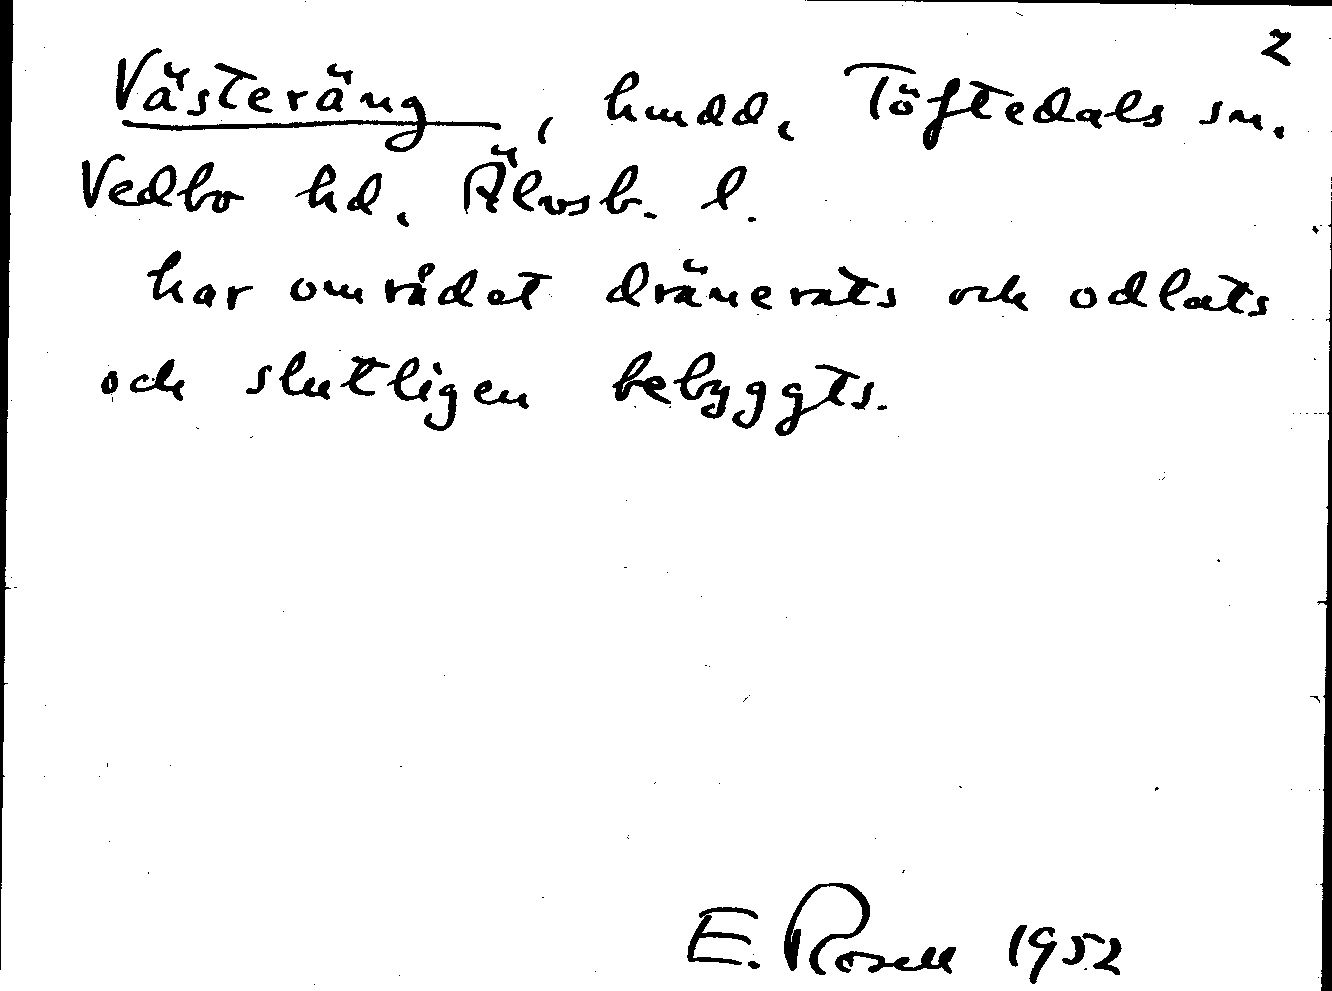 2
Västeräng, hmdd, Töftedals sn.
Vedbo hd, Älvsb. l.
har området dränerats och odlats
och slutligen bebyggts.
E. Rosell 1952